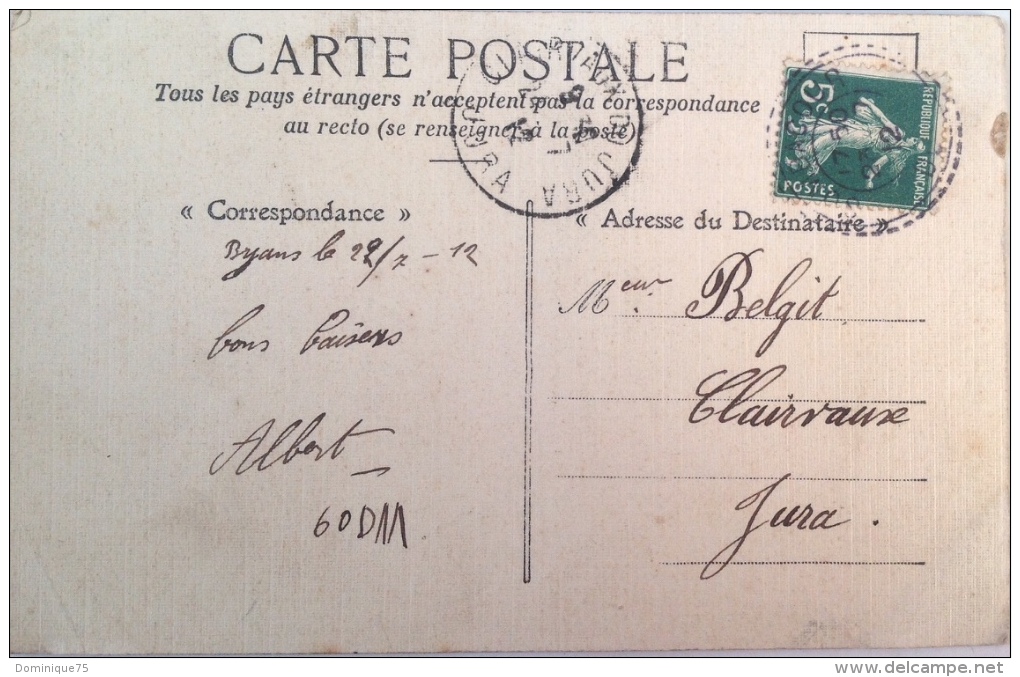 CARTE POSTALE
Tous les pays étrangers n'acceptent pas la correspondance
au recto (se renseigner à la poste)
« Correspondance »
Byans le 29/7 - 12
bons baisers
Albert
60DM
« Adresse du Destinataire »
Meur Belgit
Clairvaux
Jura.
CLAIRVAUX DU JURA
JURA
5c
REPUBLIQUE FRANÇAISE
POSTES
Dominique75
www.delcampe.net